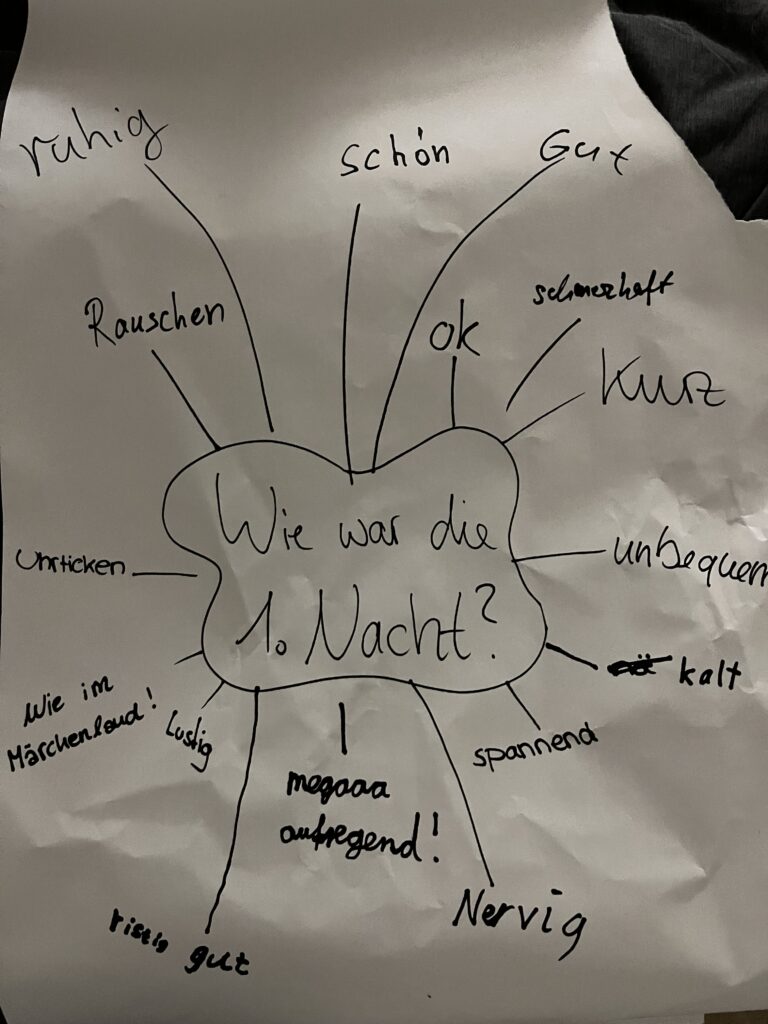 ruhig
schön
Gut
Rauschen
ok
schmerzhaft
Kurz
Wie war die
1. Nacht?
Uhrticken
unbequem
kalt
Wie im
Märchenland!
Lustig
spannend
megaaa
aufregend!
Nervig
gut